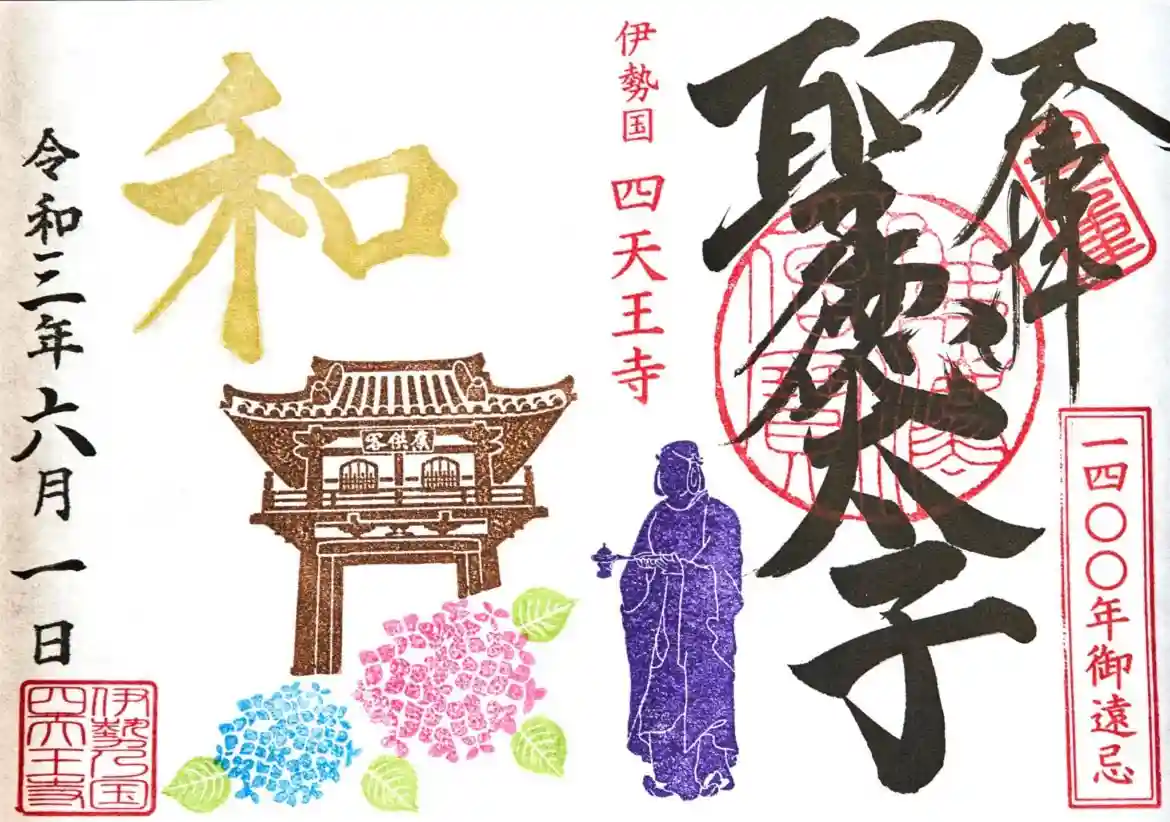 奉拝
聖徳太子
一四〇〇年御遠忌
伊勢国 四天王寺
和
令和三年六月一日
伊勢乃国
四天王寺